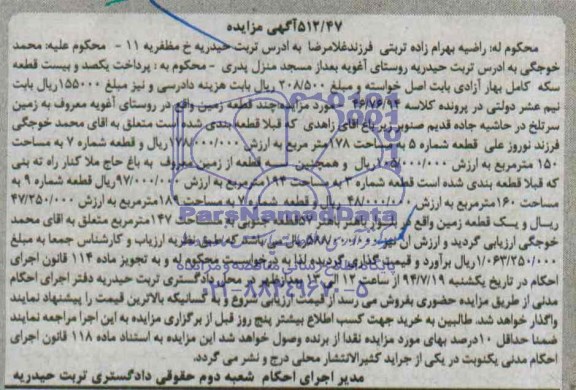 ۵۱۲/۴۷آگهی مزایده
محکوم له: راضیه بهرام زاده تربتی فرزندغلامرضا به ادرس تربت حیدریه خ مظفریه ۱۱ - محکوم علیه: محمد
خوجگی به ادرس تربت حیدریه روستای آغویه بعداز مسجد منزل پدری - محکوم به : پرداخت یکصد و بیست قطعه
سکه کامل بهار آزادی بابت اصل خواسته و مبلغ ۲۰۸/۵۰۰ریال بابت هزینه دادرسی و نیز مبلغ ۱۵۵۰۰۰ریال بابت
نیم عشر دولتی در پرونده کلاسه ۴۶/۷۶/۹۴ مورد مزایده چند قطعه زمین واقع در روستای آغویه معروف به زمین
سرتلخ در حاشیه جاده قدیم صنوبر زیرباغ اقای زاهدی که قبلا قطعه بندی شده است متعلق به اقای محمد خوجگی
فرزند نوروز علی قطعه شماره ۵ به مساحت ۱۷۸متر مربع به ارزش ۱۷۸/۰۰۰/۰۰۰ریال و قطعه شماره ۷ به مساحت
۱۵۰ مترمربع به ارزش ۱۰۵/۰۰۰/۰۰۰ریال و همچنین سه قطعه از زمین معروف به باغ حاج ملا کنار راه ته بنی
که قبلا قطعه بندی شده است قطعه شماره ۲ به مساحت ۱۹۴مترمربع به ارزش ۹۷/۰۰۰/۰۰۰ریال قطعه شماره ۹ به
مساحت ۱۶۰مترمربع به ارزش ۴۸/۰۰۰/۰۰۰ریال و قطعه شماره ۷ به مساحت ۱۸۹مترمربع به ارزش ۴۷/۲۵۰/۰۰۰
ریال و یک قطعه زمین واقع در جنوبی به مساحت ۱۴۷مترمربع متعلق به اقای محمد
خوجگی ارزیابی گردید و ارزش ان ۵۸۸/۰۰۰/۰۰۰ریال می باشد که طبق نظریه ارزیاب و کارشناس جمعا به مبلغ
۱/۰۶۳/۲۵۰/۰۰۰ریال برآورد و قیمت گذاری گردیده لذا به درخواست محکوم له و به تجویز ماده ۱۱۴ قانون اجرای
احکام در تاریخ یکشنبه ۹۴/۷/۱۹ از ساعت ۱۲ الی در محل دادگستری تربت حیدریه دفتر اجرای احکام
مدنی از طریق مزایده حضوری بفروش می رسد از قیمت ارزیابی شروع و به کسانیکه بالاترین قیمت را پیشنهاد نمایند
واگذار خواهد شد. طالبین به خرید جهت کسب اطلاع بیشتر پنج روز قبل از برگزاری مزایده به این اجرا مراجعه نمایند
ضمنا حداقل ۱۰درصد بهای مورد مزایده نقدا از برنده وصول خواهد شد این مزایده به استناد ماده ۱۱۸ قانون اجرای
احکام مدنی یکنوبت در یکی از جراید کثیرالانتشار محلی درج و نشر می گردد.
مدیر اجرای احکام شعبه دوم حقوقی دادگستری تربت حیدریه
ParsNamadData
پایگاه اطلاع رسانی مناقصه و مزایده
۰۲۱-۸۸۳۴۹۶۷۰-۵